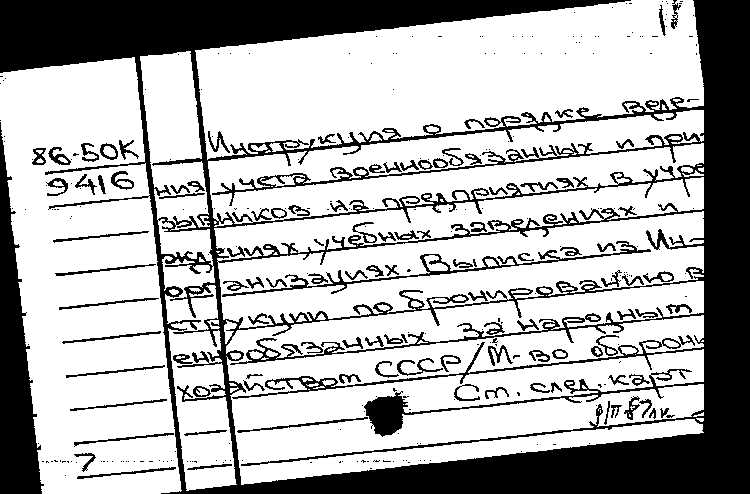 86-50К
9416
Инструкция о порядке веде-
ния учета военнообязанных и при-
зывников на предприятиях, в учре
ждениях, учебных заведениях и
организациях. Выписка из Ин-
струкции по бронированию в
еннообязанных за народным
хозяйством СССР/М-во оборони
Ст. след. карт
7